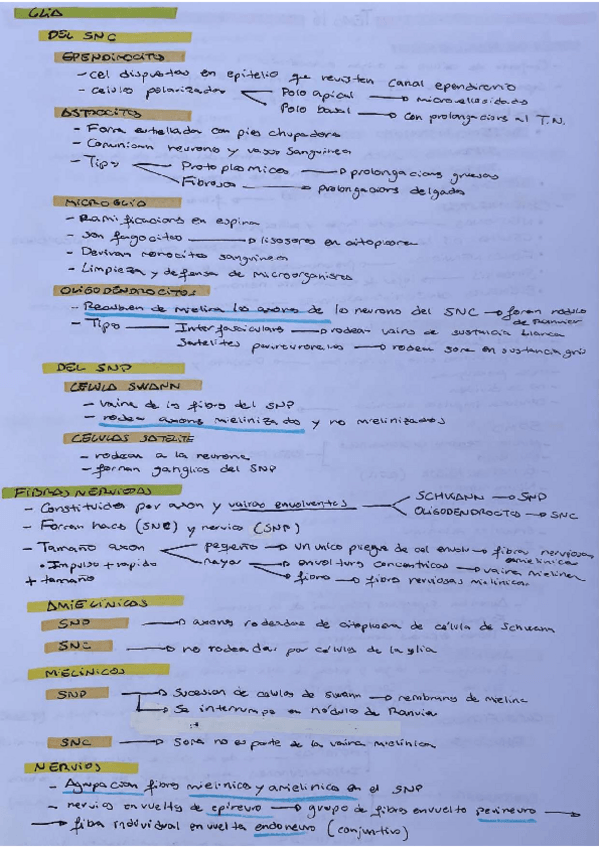 GLIA
DEL SNC
EPENDIMOCITOS
- cel dispuestas en epitelio que revisten canal ependimario
- celula polarizadas Polo apical → microvellosidades
Polo basal → con prolongacions al T.N.
ASTROCITOS
- Forma estrellada con pies chupadores
- Comunican neurona y vasos sanguineos
- Tipos Protoplasmicos → prolongacions gruesas
Fibrosos → prolongacions delgadas
MICROGLIA
- Ramificacions en espina
- Son fagocitos → lisosomas en citoplasma
- Derivan monocitos sanguineos
- Limpieza y defensa de microorganismos
OLIGODENDROCITOS
- Recubren de mielina los axones de la neurona del SNC → foran nódulo de Ranvier
- Tipo Interfasciculars → rodean vaina de sustancia blanca
Satelites perineuronales → rodean soma en sustancia gris
DEL SNP
CELULA SWANN
- vaina de la fibra del SNP
- rodean axons mielinizado y no mielinizados
CELULAS SATELITE
- rodean a la neurona
- forman ganglios del SNP
FIBRAS NERVIOSAS
- Constituidas por axon y vainas envolventes SCHWANN → SNP
OLIGODENDROCITO → SNC
- Forman haces (SNC) y nervio (SNP)
- Tamaño axon pequeño → un unico pliegue de cel envolv → fibras nerviosas amielinicas
• Impulso + rapido mayor → envoltura concentricas → vaina mielina
+ tamaño → fibra → fibra nerviosas mielinicas
AMIELÍNICAS
SNP → axones rodeados de citoplasma de célula de Schwann
SNC → no rodeadas por células de la glia
MIELÍNICAS
SNP → Sucesion de celulas de swann → membrana de mielina
→ Se interrumpe en nódulos de Ranvier
SNC → Soma no es parte de la vaina mielinica
NERVIOS
- Agrupacion fibras mielinica y amielinica en el SNP
- nervios envueltos de epineuro → grupo de fibras envuelto perineuro →
→ fibra individual envuelta endoneuro (conjuntivo)